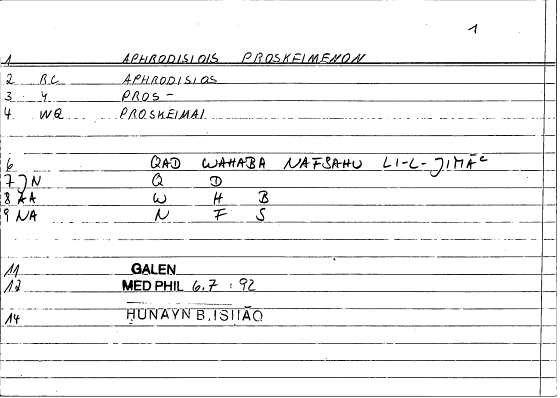 1
1 APHRODISIOIS PROSKEIMENON
2 RC APHRODISIOS
3 Y PROS-
4 WQ PROSKEIMAI
6 QAD WAHABA NAFSAHU LI-L-JIMĀC
7 JN Q D
8 AA W H B
9 NA N F S
11 GALEN
12 MED PHIL 6.7 : 92
14 ḤUNAYN B. ISḤĀQ